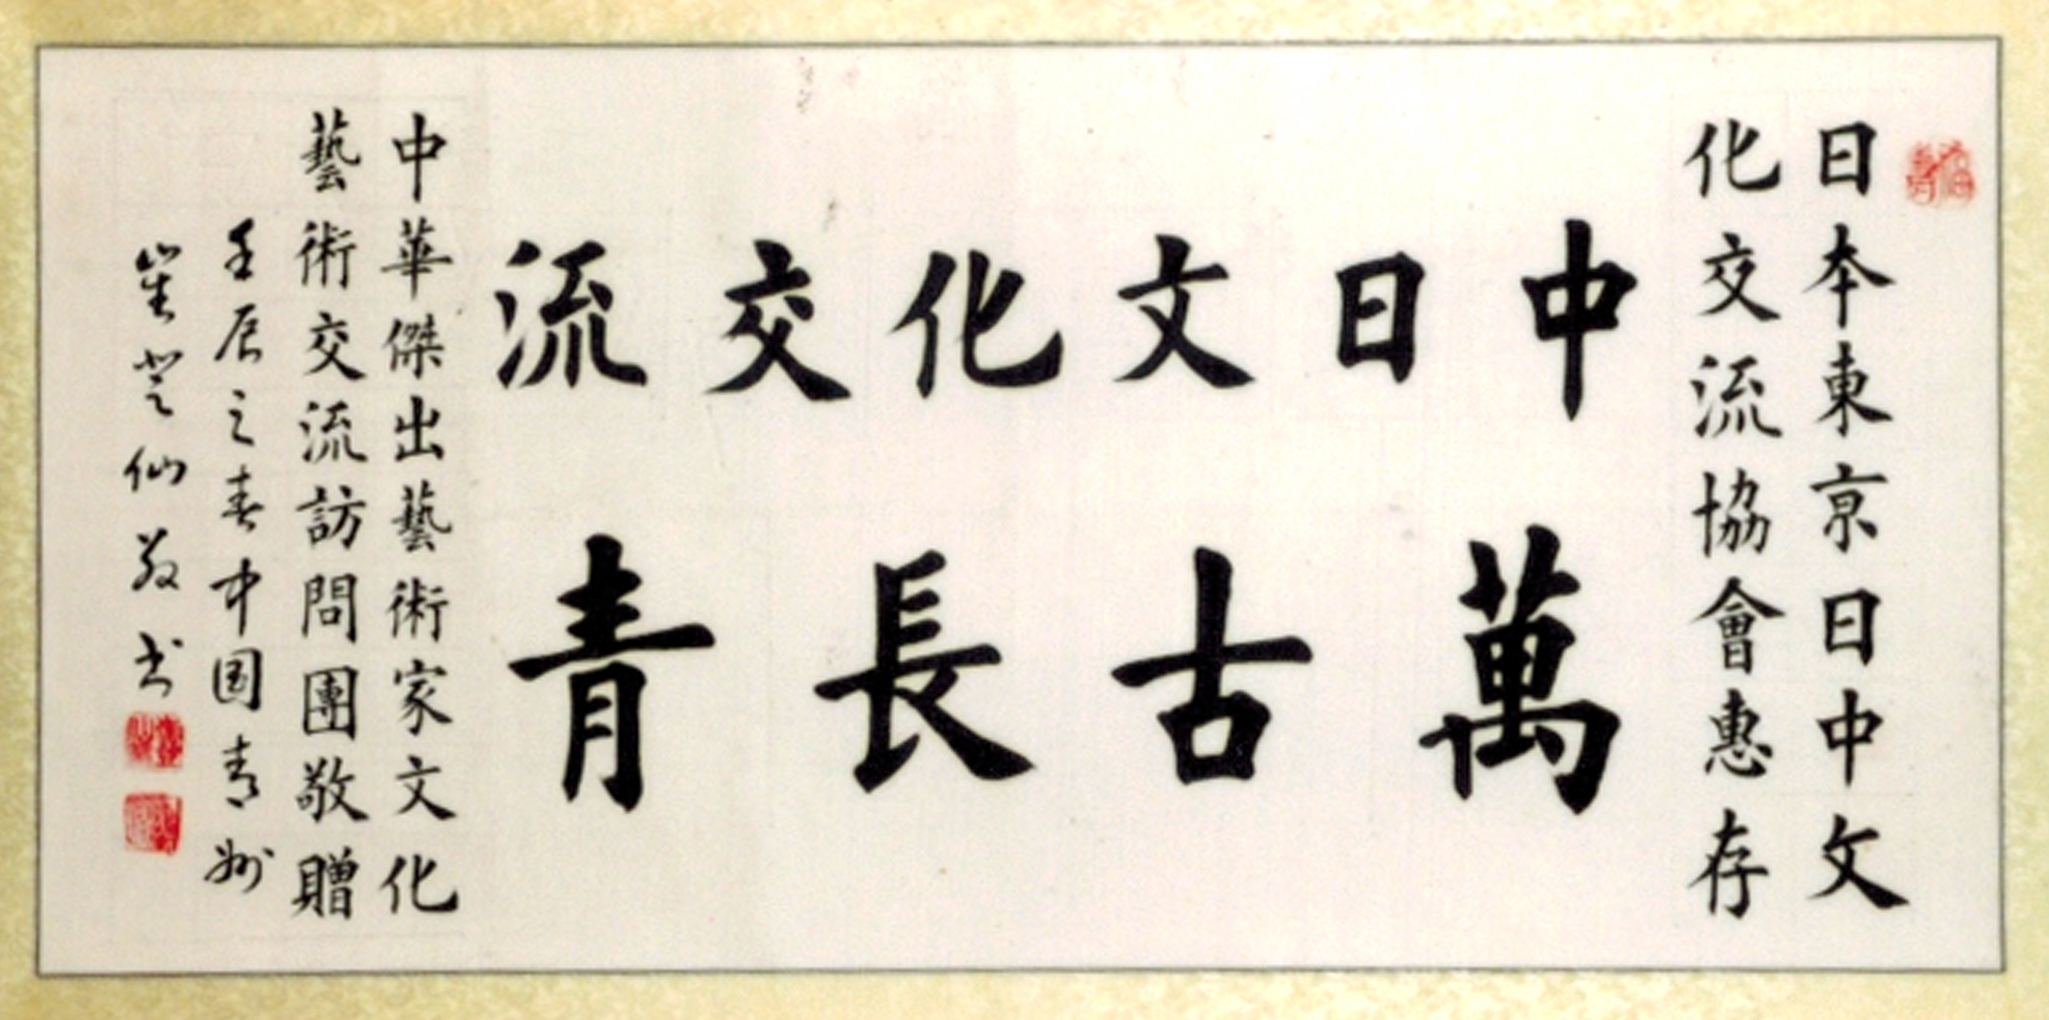 日本東京日中文
化交流協會惠存
中日文化交流
萬古長青
中華傑出藝術家文化
藝術交流訪問團敬贈
壬辰之春中国青州
崔芝仙敬书